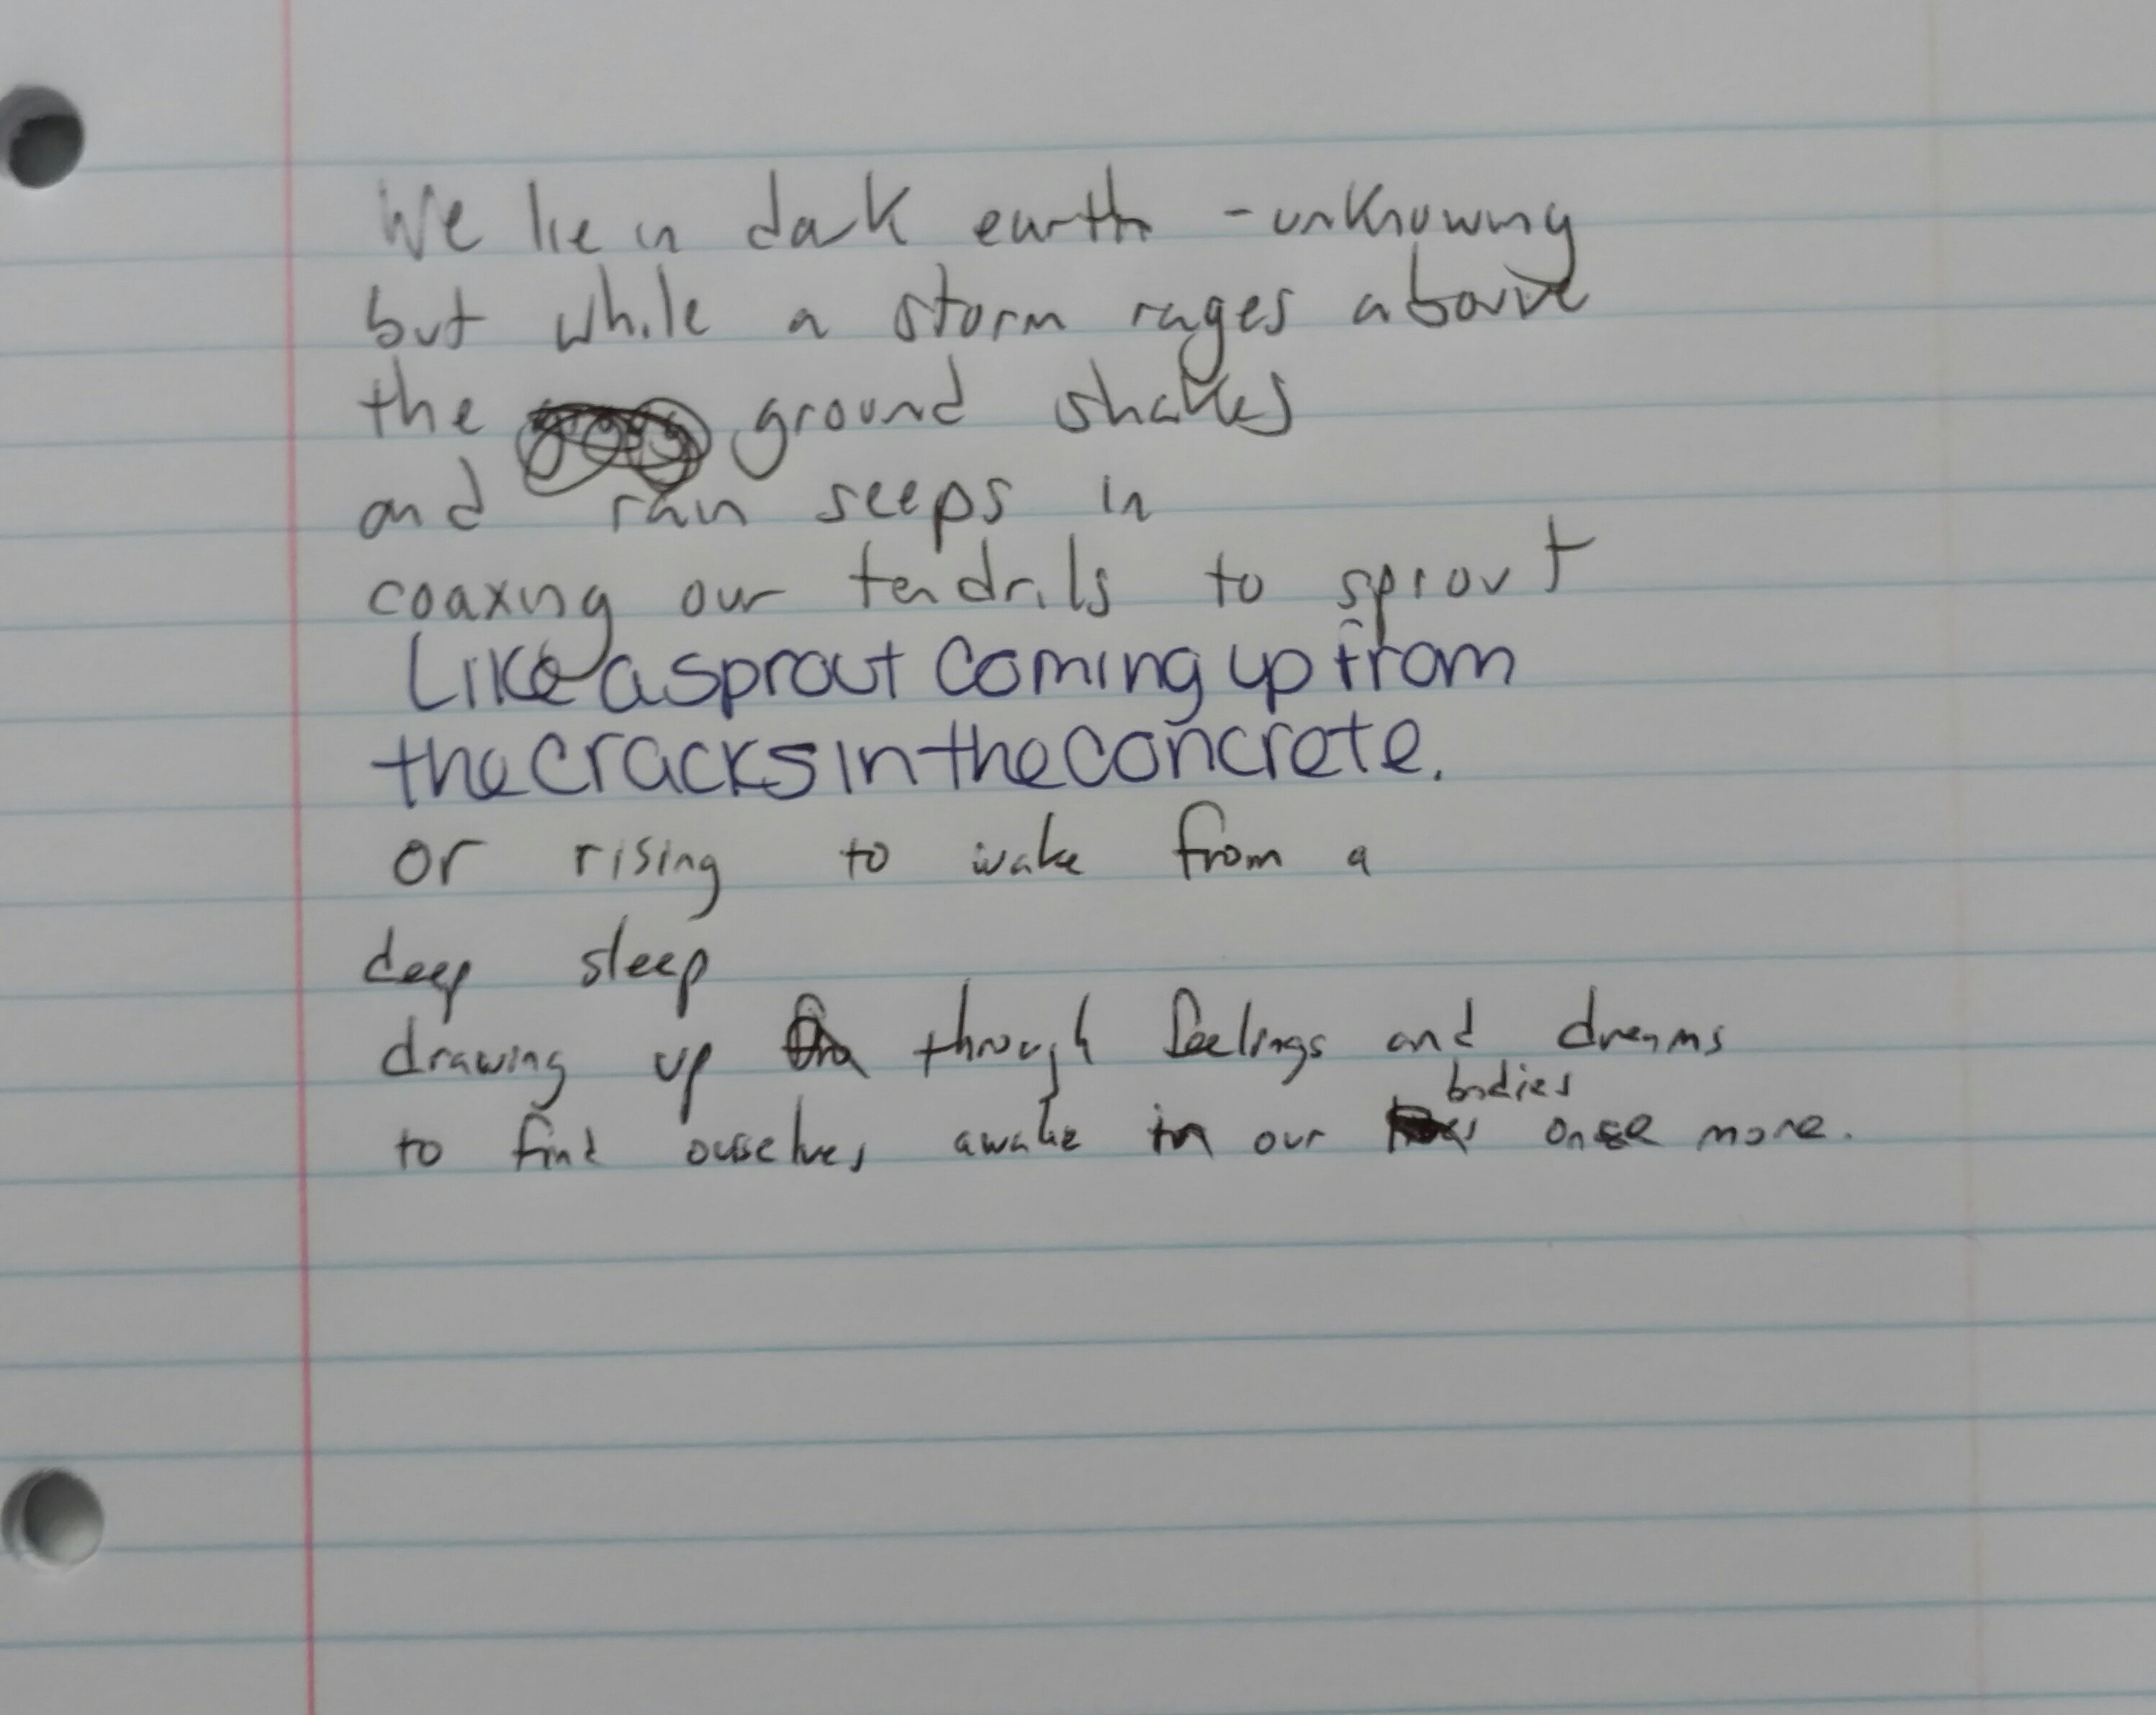 We lie in dark earth - unknowing
but while a storm rages above
the ground shakes
and rain seeps in
coaxing our tendrils to sprout
Like a sprout coming up from
the cracks in the concrete.
or rising to wake from a
deep sleep
drawing up through feelings and dreams
to find ourselves awake in our bodies once more.